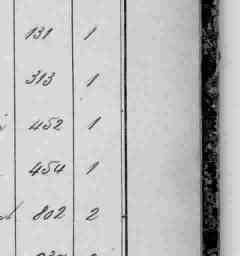 131 1
313 1
452 1
454 1
802 2